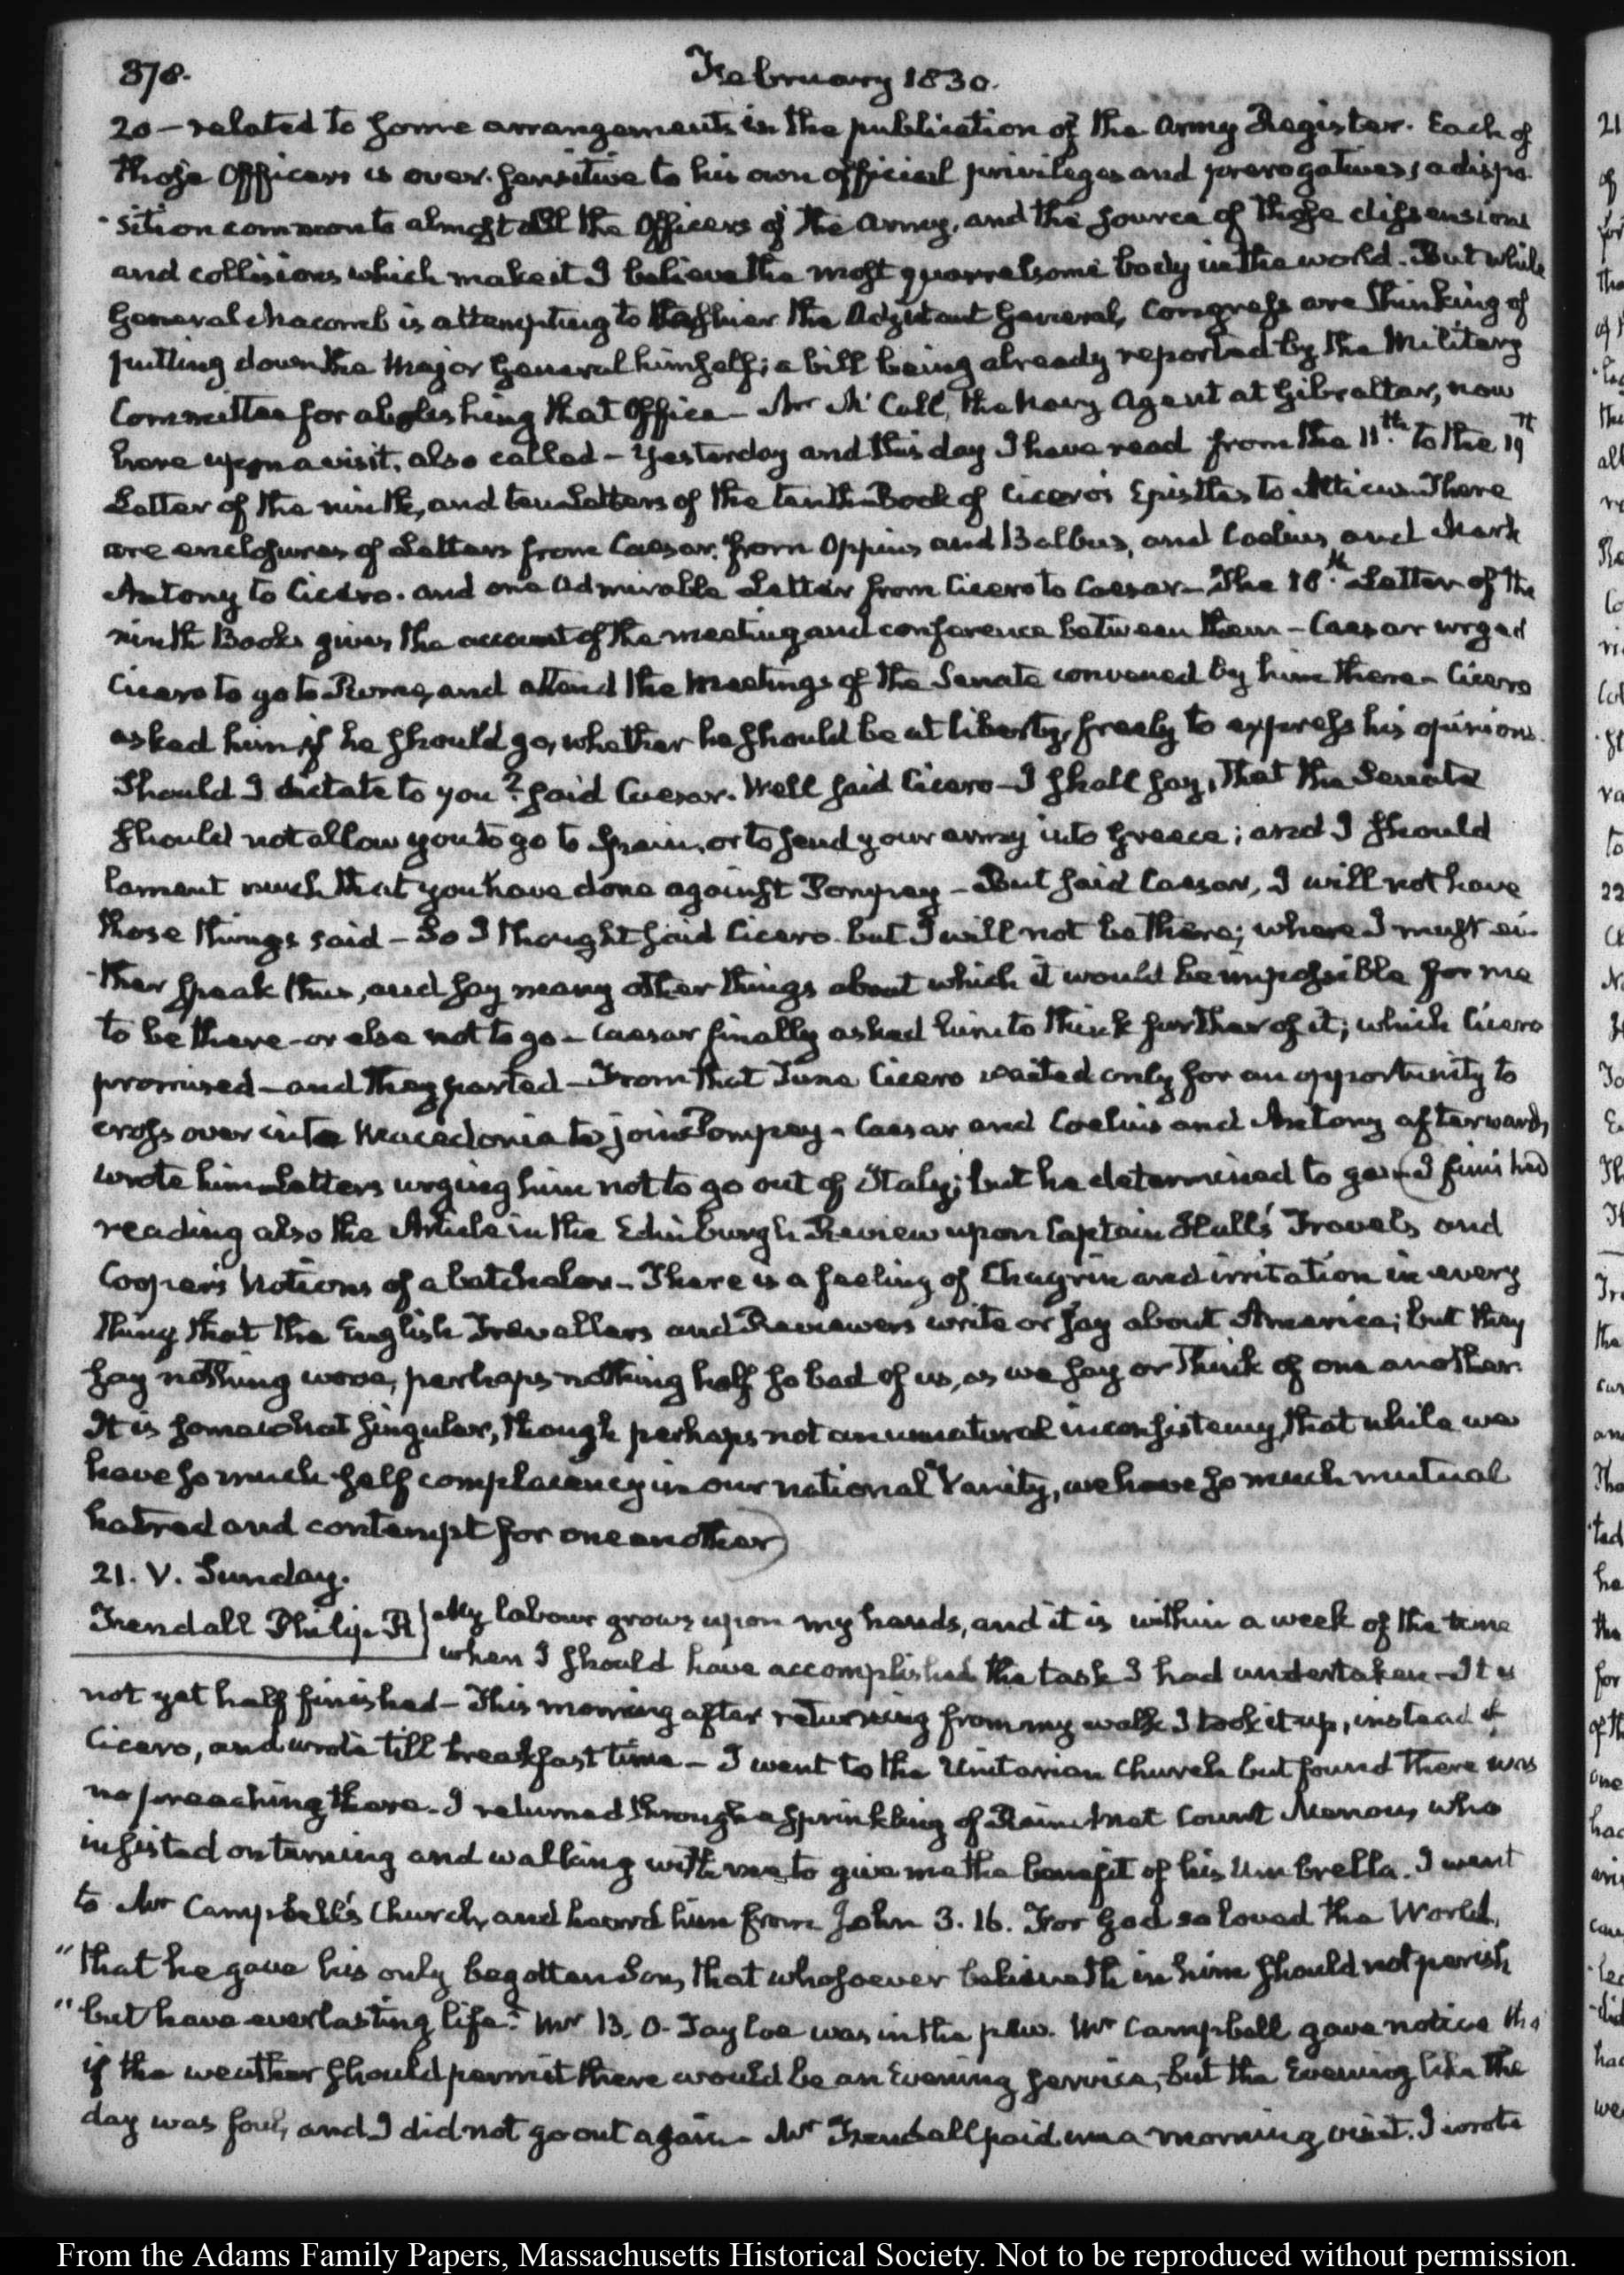 378.
February 1830.
20 — related to some arrangements in the publication of the Army Register. Each of
those Officers is over-sensitive to his own official privileges and prerogatives; a dispo-
-sition common to almost all the Officers of the Army, and the source of those dissensions
and collisions which make it I believe the most quarrelsome body in the world. But while
General Macomb is attempting to Cashier the Adjutant General, Congress are thinking of
putting down the Major General himself; a bill being already reported by the Military
Committee for abolishing that Office — Mr. McCall, the Navy Agent at Gibraltar, now
here upon a visit, also called — Yesterday and this day I have read from the 11th. to the 19th
Letter of the ninth, and ten Letters of the tenth Book of Cicero's Epistles to Atticus. There
are enclosures of Letters from Caesar, from Oppius and Balbus, and Coelius and Mark
Antony to Cicero. and one admirable Letter from Cicero to Caesar — The 18th. Letter of the
ninth Book gives the account of the meeting and conference between them — Caesar urged
Cicero to go to Rome, and attend the Meetings of the Senate convened by him there — Cicero
asked him if he should go, whether he should be at liberty, freely to express his opinions.
Should I dictate to you? said Caesar. Well said Cicero — I shall say, that the Senate
should not allow you to go to Spain, or to send your army into Greece; and I should
lament much that you have done against Pompey — But said Caesar, I will not have
those things said — So I thought said Cicero. but I will not be there; where I must ei-
-ther speak thus, and say many other things about which it would be impossible for me
to be there — or else not to go — Caesar finally asked him to think further of it; which Cicero
promised — and they parted — From that Time Cicero waited only for an opportunity to
cross over into Macedonia to join Pompey — Caesar and Coelius and Antony afterwards
wrote him Letters urging him not to go out of Italy; but he determined to go — (I finished
reading also the Article in the Edinburgh Review upon Captain Hall's Travels and
Cooper's Notions of a batchelor — There is a feeling of Chagrin and irritation in every
thing that the English Travellers and Reviewers write or say about America; but they
say nothing worse, perhaps nothing half so bad of us, as we say or think of one another.
It is somewhat singular, though perhaps not an unnatural inconsistency, that while we
have so much self complacency in our national Vanity, we have so much mutual
hatred and contempt for one another)
21. V. Sunday.
Fendall Philip. R } My labour grows upon my hands, and it is within a week of the time
when I should have accomplished the task I had undertaken — It is
not yet half finished — This morning after returning from my walk I took it up, instead of
Cicero, and wrote till breakfast time — I went to the Unitarian Church but found there was
no preaching there — I returned through a sprinkling of Rain & met Count Menou, who
insisted on turning and walking with me to give me the benefit of his Umbrella. I went
to Mr Campbell's Church, and heard him from John 3. 16. For God so loved the World,
"that he gave his only begotten Son, that whosoever believeth in him should not perish
"but have everlasting life." Mr B. O. Tayloe was in the pew. Mr Campbell gave notice tha
if the weather should permit there would be an Evening service, but the Evening like the
day was foul, and I did not go out again — Mr Fendall paid me a morning visit. I wrote
From the Adams Family Papers, Massachusetts Historical Society. Not to be reproduced without permission.